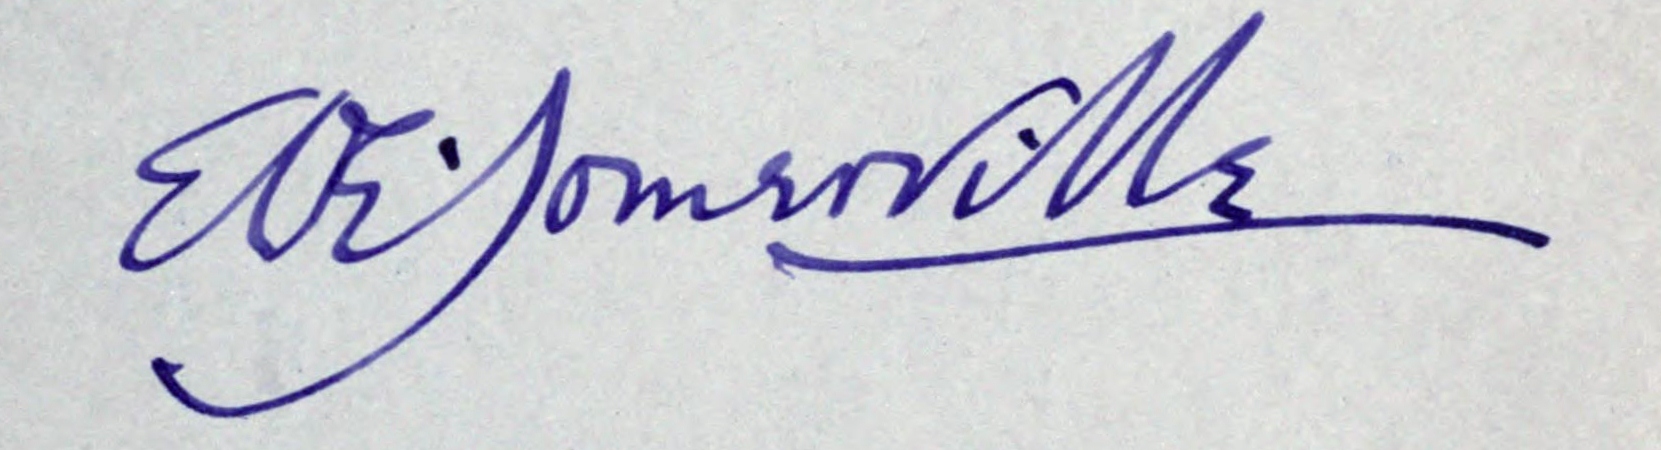 E Œ. Somerville